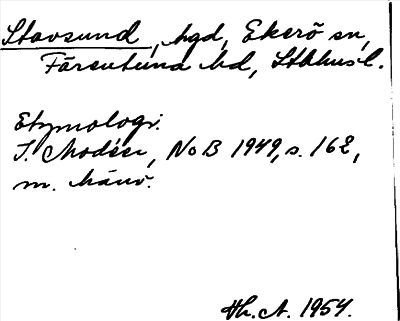 Stavsund, hgd, Ekerö sn,
Färentuna hd, Sthlms l.
Etymologi.
I. Modéer, NoB 1949, s. 162,
m. hänv.
Hh. A. 1954.